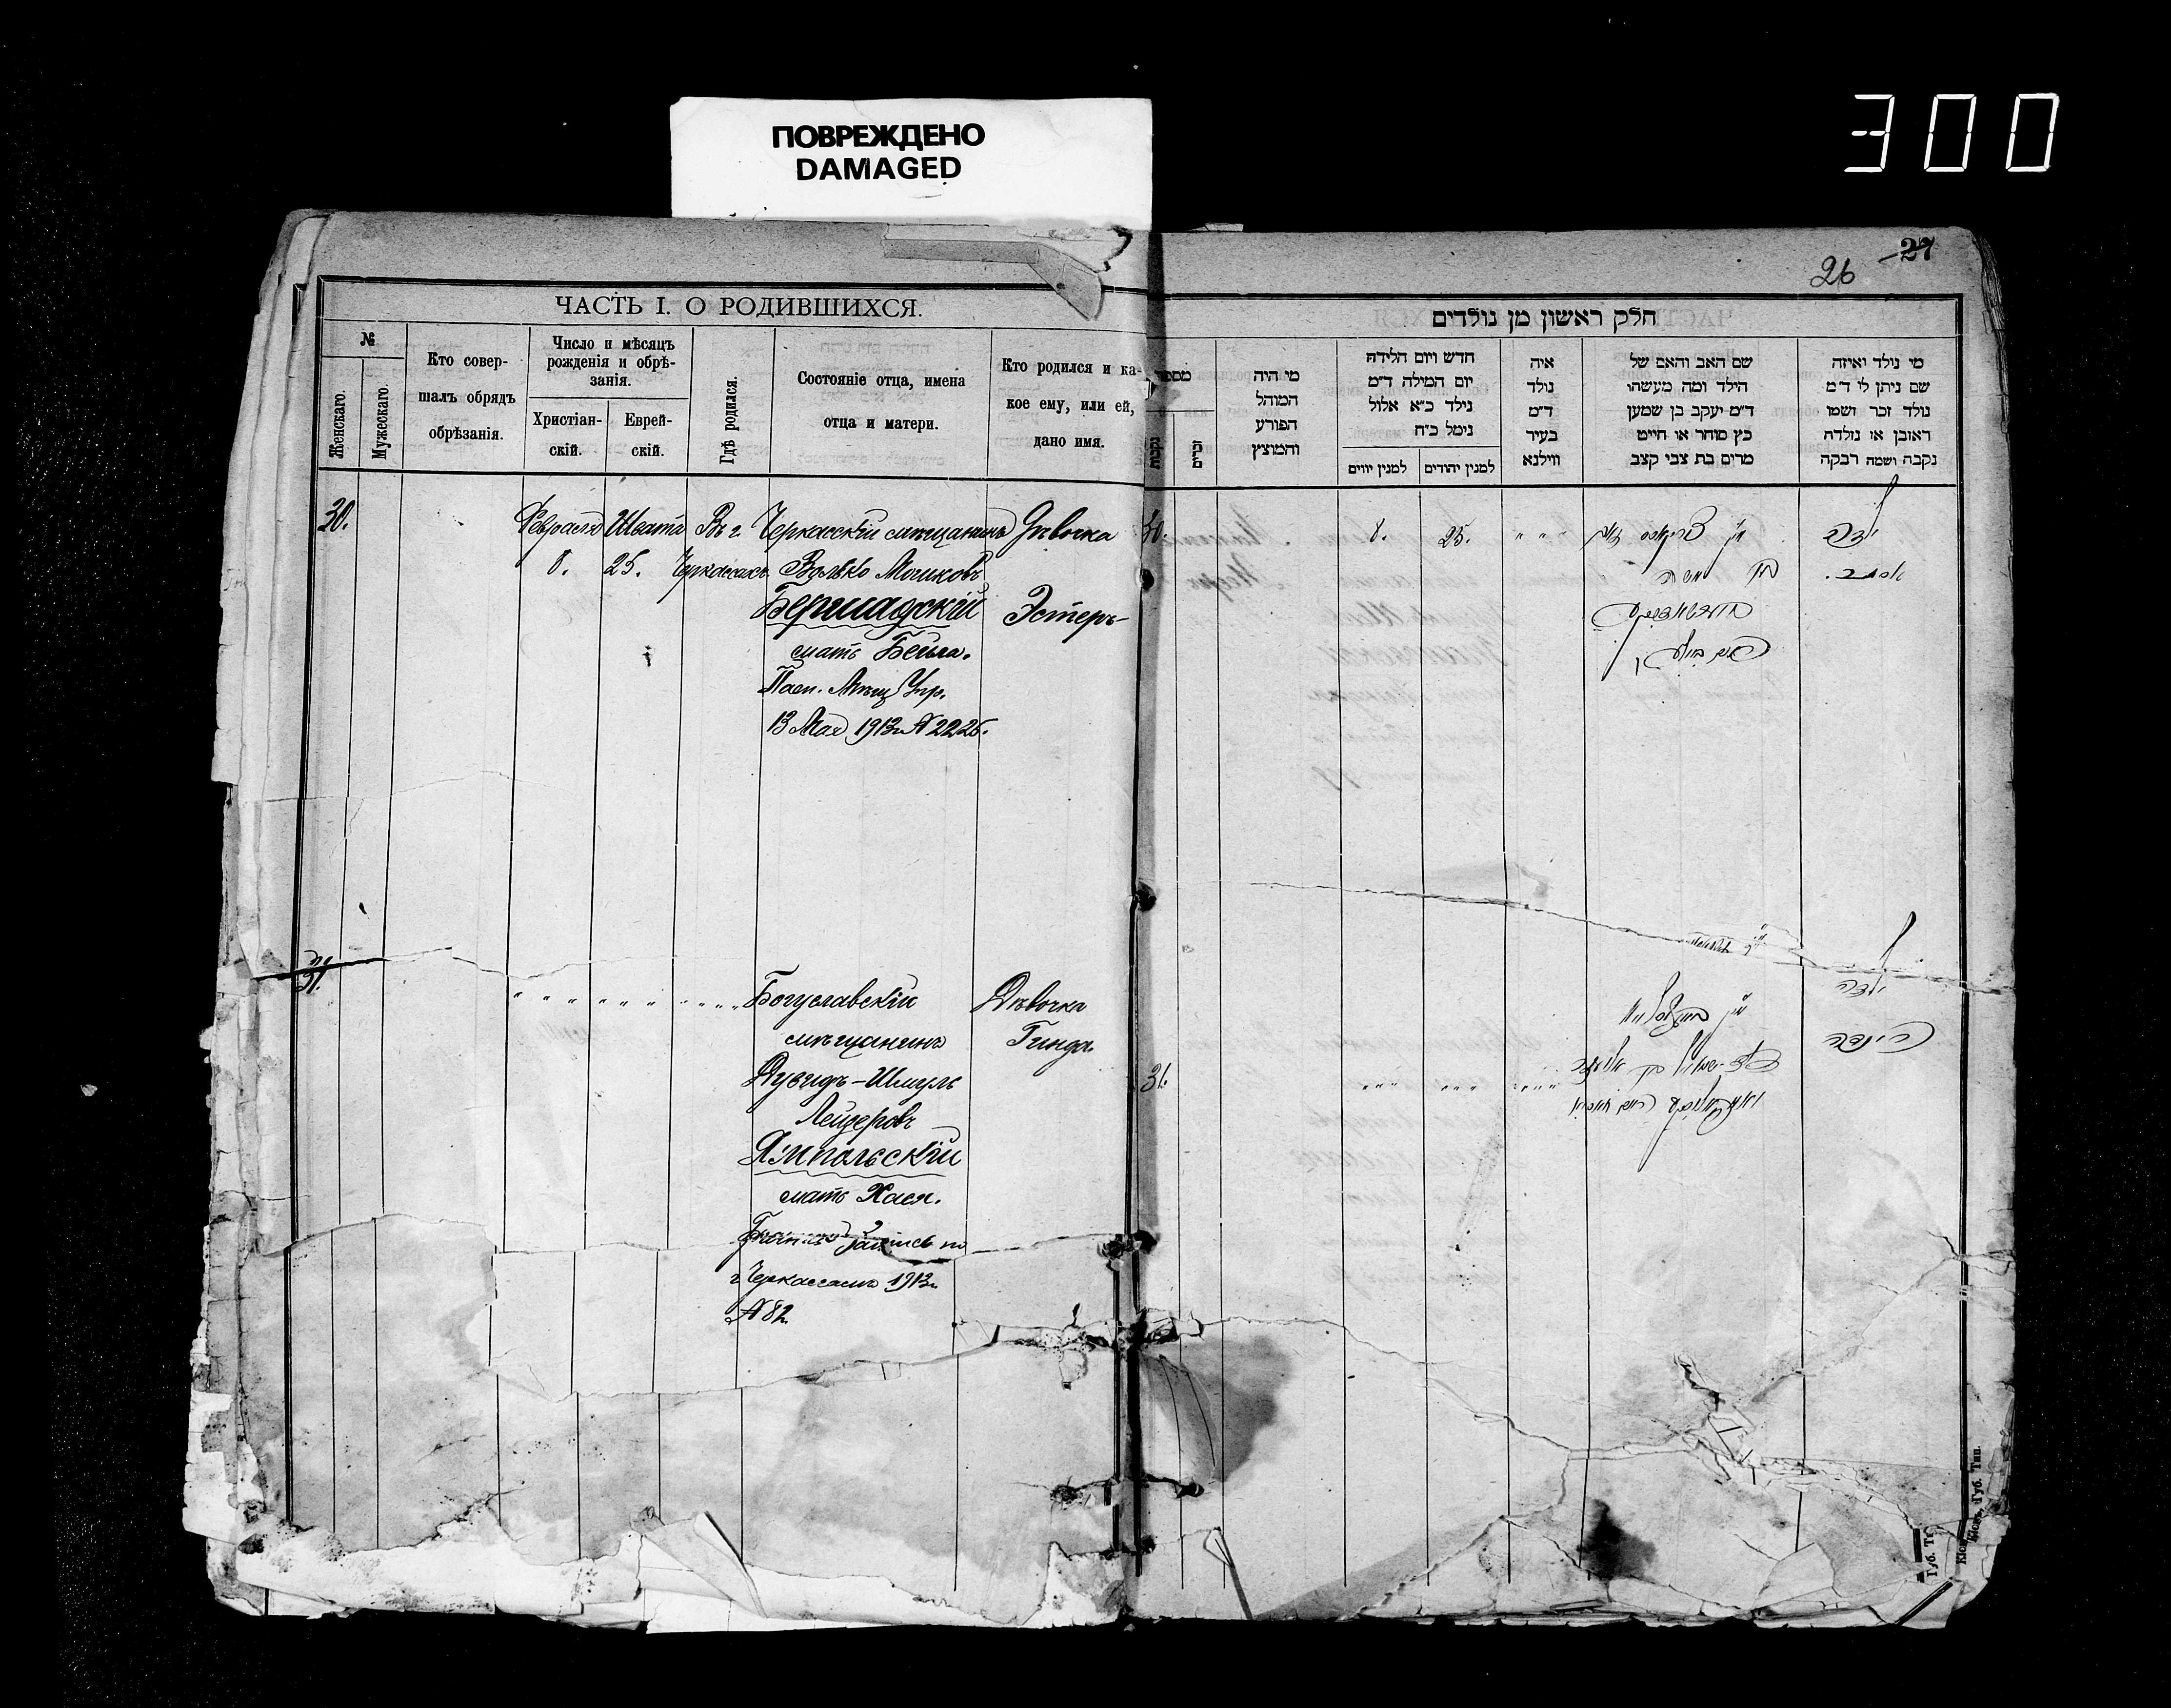 ПОВРЕЖДЕНО
DAMAGED
300
ЧАСТЬ I. О РОДИВШИХСЯ.
№
Женскаго.
Мужескаго.
Кто совер-
шалъ обрядъ
обрѣзанія.
Число и мѣсяцъ
рожденія и обрѣ-
занія.
Христіан-
скій.
Еврей-
скій.
Гдѣ родился.
Состояніе отца, имена
отца и матери.
Кто родился и ка-
кое ему, или ей,
дано имя.
30.
Февраля Швата Въ г. Черкасскій мѣщанинъ Дѣвочка
8. 25. Черкассахъ Волько Мошковъ
Бершадскій Эстеръ
мать Бейла.
Пасп. Мѣщ Упр.
13 Мая 1913 г. № 2226.
31.
" " " " " " " " " Богуславскій Дѣвочка
мѣщанинъ Гинда.
Дувидъ-Шмуль
Лейзеровъ
Ямпольскій
мать Хася.
Запись по
г. Черкассамъ 1913 г.
№ 82
26 27
חלק ראשון מן נולדים
מי נולד ואיזה
שם ניתן לי ד״מ
נולד זכר ושמו
ראובן או נולדת
נקבה ושמה רבקה
שם האב והאם של
הילד ומה מעשהו
ד״מ יעקב בן שמעון
כץ סוחר או חייט
מרים בת צבי קצב
איה
נולד
ד״מ
בעיר
ווילנא
חדש ויום הלידה
יום המילה ד״מ
נילד כ״א אלול
נימל כ״ח
למנין יהודים
למנין יווים
מי היה
המוהל
הפורע
והמוצץ
מספר
זכרים
נקבות
ילדה
אסתר.
בן משה
25.
8.
30.
ילדה
הינדה
31.
Кіевъ, Губ. Тип.